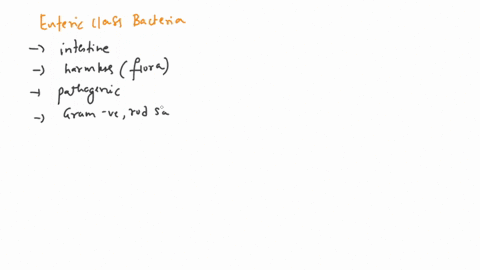 Enteric class Bacteria
-> intestine
-> harmless (flora)
-> pathogenic
-> Gram -ve, rod sa